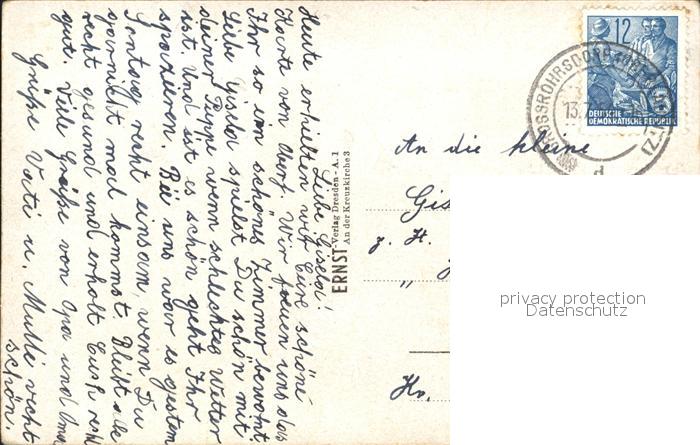 Liebe Gisela!
Heute erhielten wir Eure schöne
Karte von Wir freuen uns das
Ihr so ein schönes Zimmer bewohnt.
Liebe Gisela spielst Du schön mit
deiner Puppe wenn schlechtes Wetter
ist. Und ist es schön geht Ihr
spazieren. Bei uns war es gestern
Sontag recht einsam, wenn Du
garnicht mal kommst. Bleibt alle
recht gesund und erholt Euch recht
gut. Viele Grüße von Opa und Oma
Grüße Vati u. Mutti recht
schön.
ERNST-Verlag Dresden-A. 1
An der Kreuzkirche 3
12
DEUTSCHE
DEMOKRATISCHE REPUBLIK
GROSSRÖHRSDORF
13.7
d
An die kleine
Gis
z. H.
"
privacy protection
Datenschutz